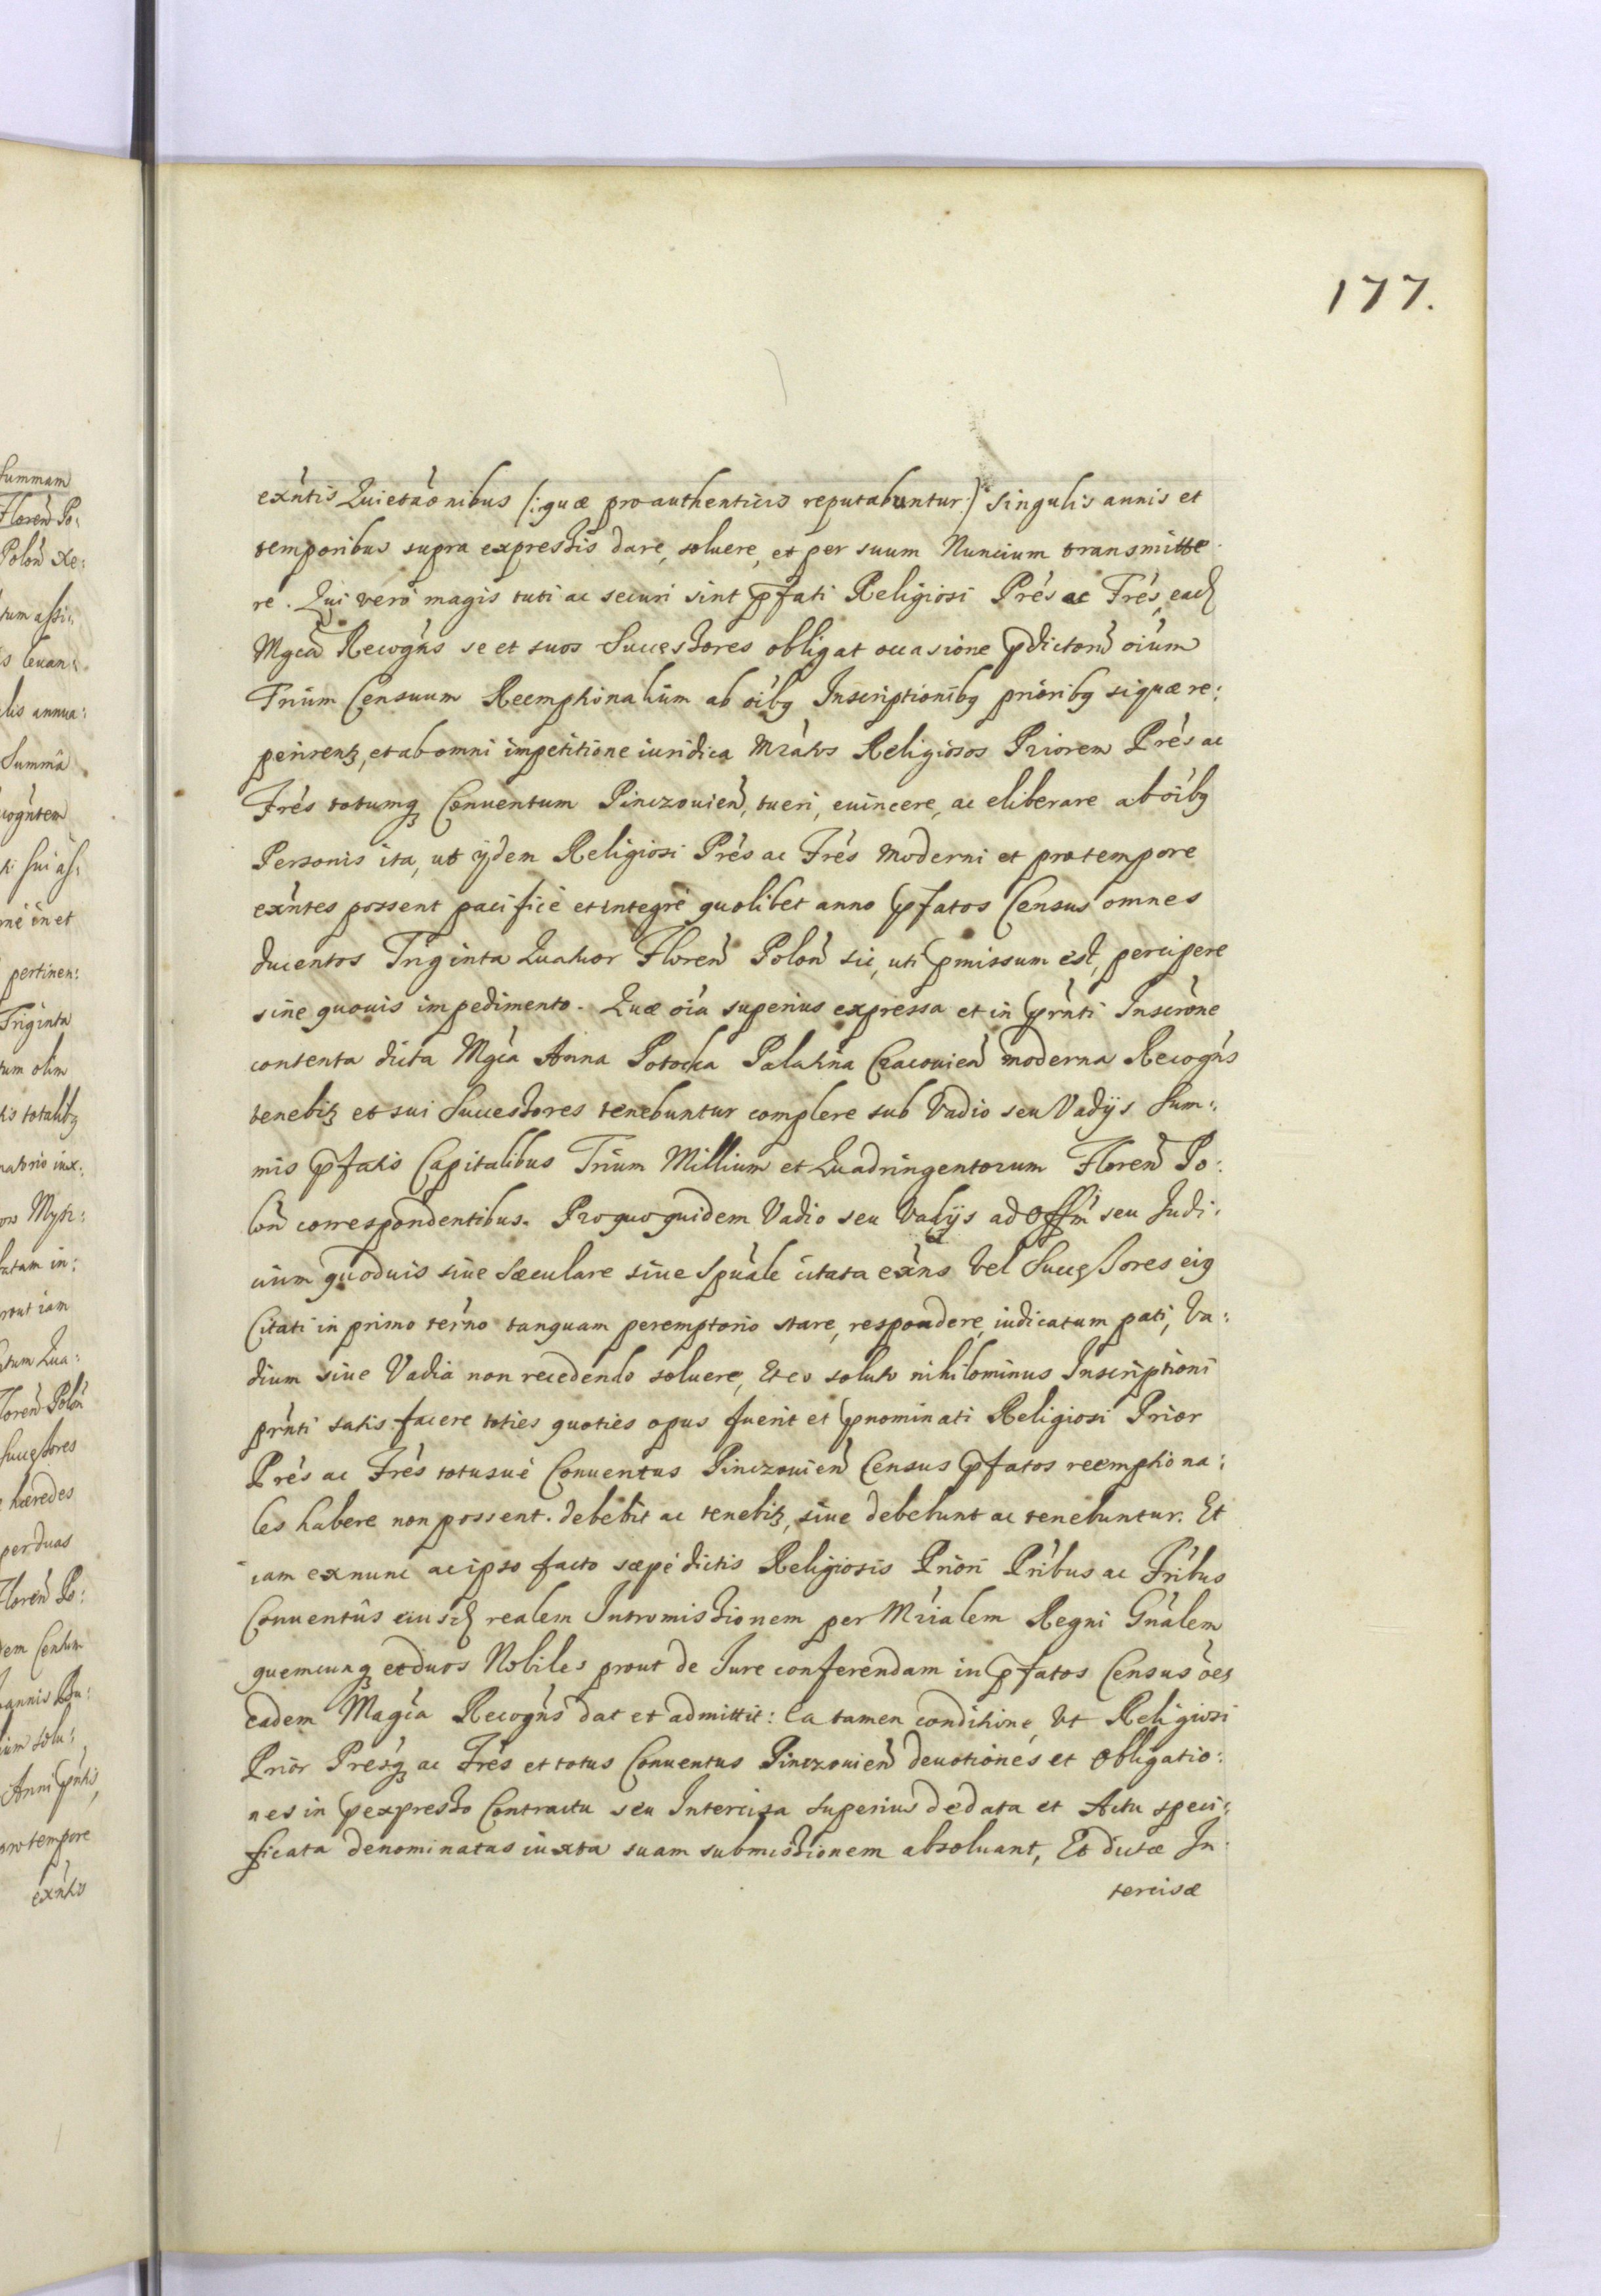 177.
exñtis Quietãonibus (:quæ pro authenticis reputabuntur:) singulis annis et
temporibus supra expressis dare, soluere, et per suum Nuncium transmitte
re. Qui verò magis tuti ac securi sint p̃fati Religiosi Prẽs ac Frẽs, ead
Mgcã Recogñs se et suos Successores obligat occasione p̃dictorũ oium̃
Trium Censuum Reemptionalium ab oĩbꝫ Inscriptionibꝫ prioribꝫ si quæ re:
perirentꝫ, et ab omni impetitione iuridica Mrãtos Religiosos Priorem Prẽs ac
Frẽs totumqꝫ Conuentum Pinczouieñ, tueri, euincere, ac eliberare ab oĩbꝫ
Personis ita, ut ijdem Religiosi Prẽs ac Frẽs moderni et pro tempore
exñtes possent pacificè et integrè quolibet anno p̃fatos Census omnes
ducentos Triginta Quatuor Floreñ Poloñ sic, uti p̃missum est, percipere
sine quouis impedimento. Quæ oĩa superius expressa et in prñti Inscrõne
contenta dicta Mgcã Anna Potocka Palatina Cracouieñ moderna Recogñs
tenebitꝫ et sui Successores tenebuntur complere sub Vadio seu Vadijs Sum:
mis p̃fatis Capitalibus Trium Millium et Quadringentorum Floreñ Po:
loñ correspondentibus. Pro quo quidem Vadio seu Vadijs ad Offm̃ seu Judi:
cium quoduis siue Sæculare siue Spũale citata exñs vel Successores eiꝰ
Citati in primo terñno tanquam peremptorio stare, respondere, iudicatum pati, Va:
dium siue Vadia non recedendo soluere, Et eo soluto nihilominus Inscriptioni
prñti satisfacere toties quoties opus fuerit et p̃nominati Religiosi Prior
Prẽs ac Frẽs totusuè Conuentus Pinczouieñ Census p̃fatos reemptiona:
les habere non possent. debebit ac tenebitꝫ, siue debebunt ac tenebuntur. Et
iam ex nunc ac ipso facto sæpè dictis Religiosis Priori Prĩbus ac Frĩbus
Conuentûs eiusd realem Intromissionem per Mrĩalem Regni Gñalem
quemcunqꝫ et duos Nobiles prout de Jure conferendam in p̃fatos Census ões
eadem Magcã Recogñs dat et admittit: Ea tamen conditione, Ut Religiosi
Prior Presqꝫ ac Frẽs et totus Conuentus Pinczouieñ deuotiones et Obligatio:
nes in p̃expresso Contractu seu Intercisa superius de data et Actu speci:
ficata denominatas iuxta suam submissionem absoluant, Et dictæ In
tercisæ